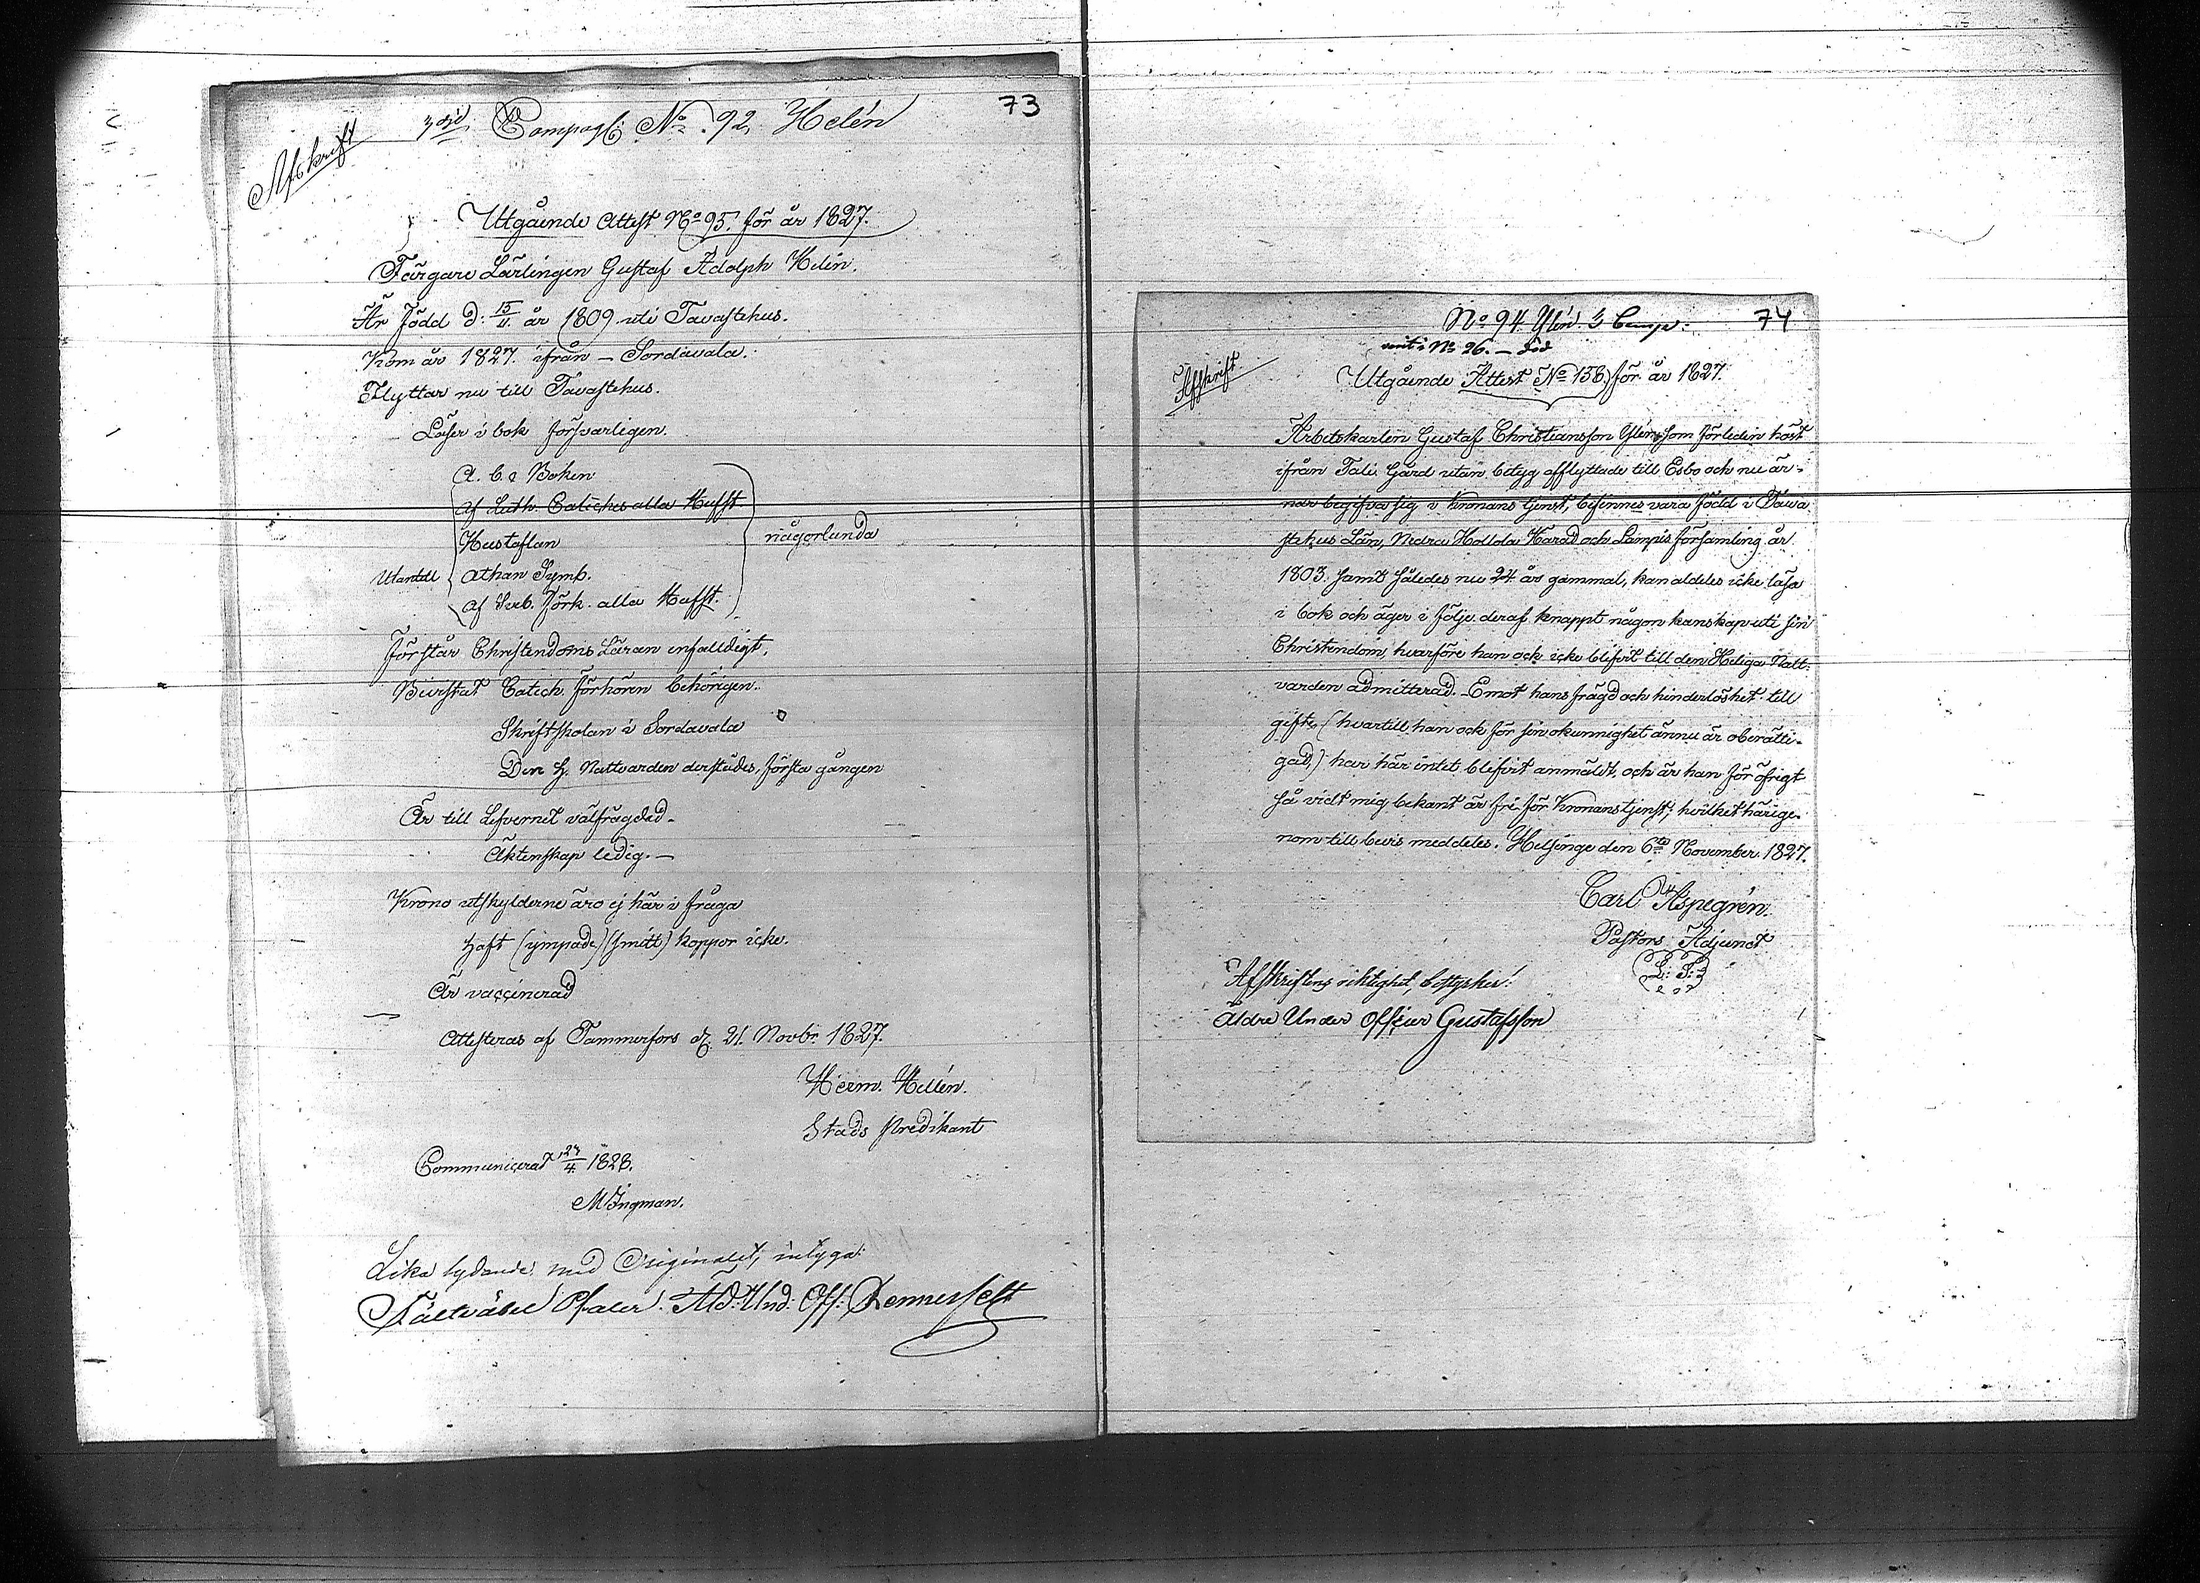 73
Afskrift
3dje Compagt: No 92 Helén
Utgående Attest No 95. för år 1827.
Färgare Lärlingen Gustaf Adolph Helén.
Är Född d: 15/11 år 1809 uti Tavastehus.
Kom år 1827. ifrån – Sordavala.
Flyttar nu till Tavastehus.
Läser i bok försvarligen.
A. b. c Boken
af Luth. Catiches alla Hufst.
Hustaflan
Utantill
Athan Symb.
af Sveb. Förk. alla Hufst.
någorlunda
Förstår Christendoms Läran enfalldigt.
Bivistat Catech. förhören behörigen.
Skriftskolan i Sordavala
Den H. Nattvarden derstädes, första gången
Är till Lefvernet välfrägdad –
Äktenskap ledig. –
Krono utskylderne äro ej här i fråga
Haft (ympade) (smitt) koppor icke.
Är vaccinerad
Attesteras af Tammerfors d. 21. Novbr. 1827.
Herm. Hellén.
Stads Predikant
Communicerat 27/4 1828.
M Ingman.
Lika lydande med Originalet, intyga:
Fältväbel Pfaler. Äld: Und: Off: Rennerfelt
74
No 94 Ylén 3 Comp:
No 26. – död
Afskrift
Utgående Attest No 158. för år 1827.
Arbetskarlen Gustaf Christiansson Ylén, som förleden höst
ifrån Tali Gård utan betyg afflyttade till Esbo och nu är-
nar begifva sig i Kronans tjenst, befinnes vara född i Tawa
stehus Län, Nedra Hollola Härad och Lampis församling år
1803. samt således nu 24 år gammal, kan aldeles icke läsa
i bok och äger i följe deraf knappt någon kanskap uti sin
Christendom, hvarföre han ock icke blifvit till den Heliga Natt-
varden admitterad. – Emot hans frägd och hinderlöshet till
gifte, (hvartill han ock för sin okunnighet ännu är oberätti-
gad,) har här intet blifvit anmäldt, och är han för öfrigt
så vidt mig bekant är fri för Kronans tjenst; hvilket härige-
nom till bevis meddeles. Helsinge den 6te November. 1827.
Carl Aspegrén.
Pastors Adjunct
L: S:
Afskriftens riktighet, bestyrker:
Äldre Under Officer Gustafsson